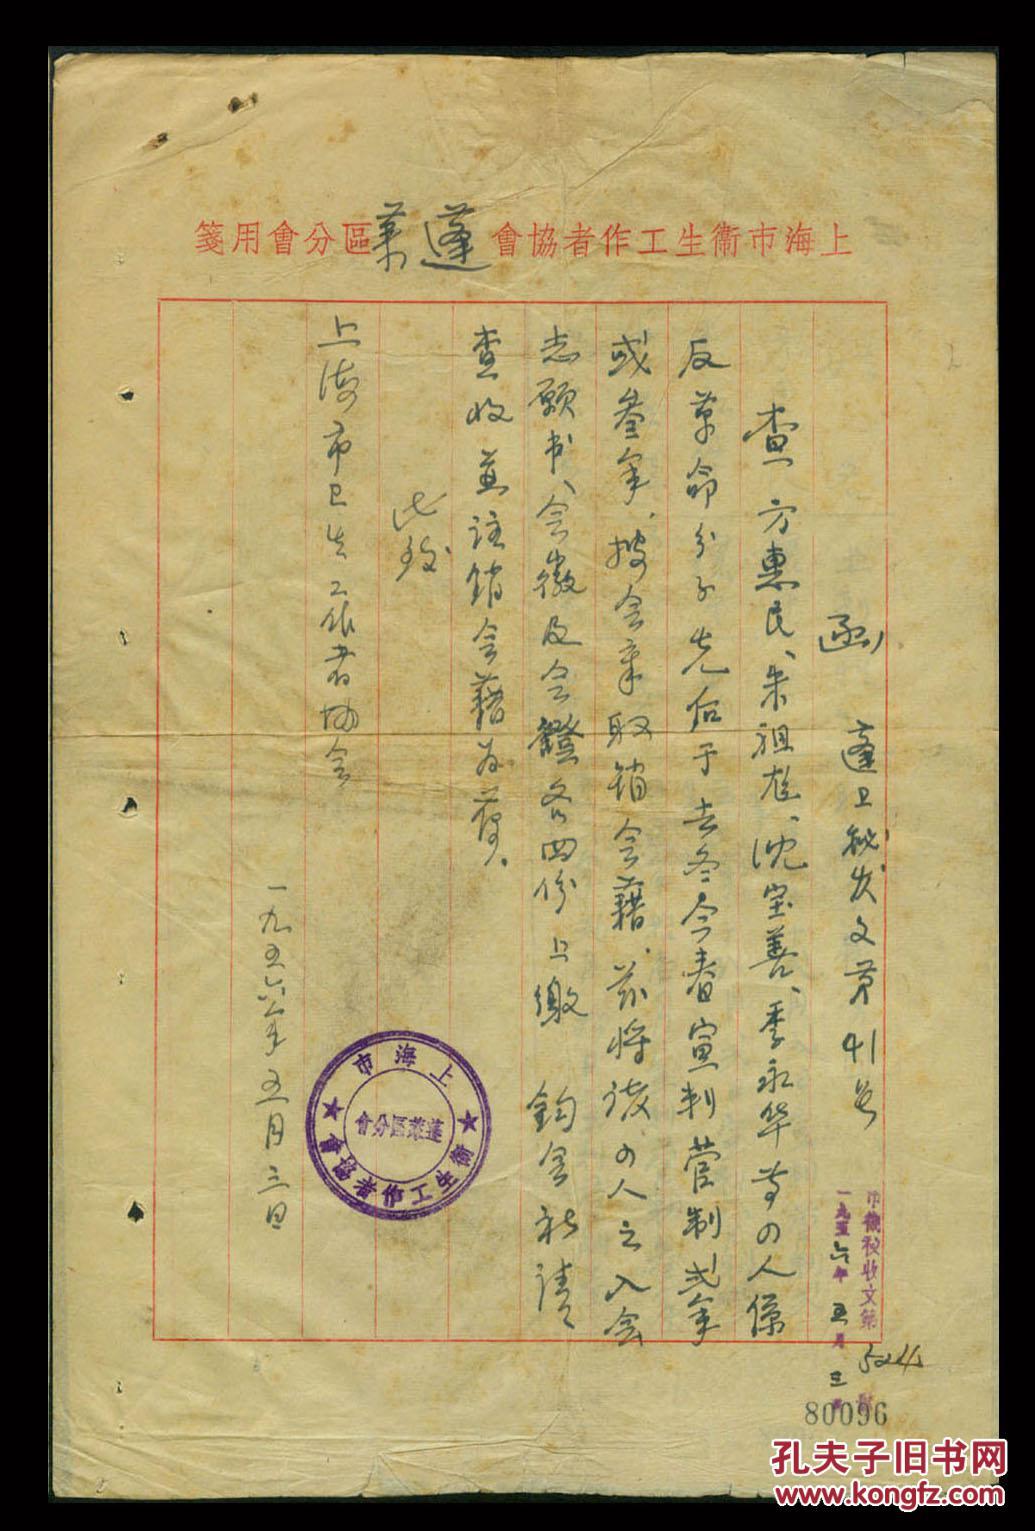 上海市衛生工作者協會蓬莱區分會用箋
函 蓬卫秘发文第41号
查方惠民、朱祖尨、沈宝善、季永华等四人係
反革命分子先后于去冬今春宣判管制弍年
或叁年，按会章取销会藉，茲将该四人之入会
志愿书、会徽及会證各四份上缴 鈞会祈请
查收並註销会藉为荷。
此致
上海市卫生工作者协会
一九五六年五月三日
上海市
衛生工作者協會
蓬萊區分會
市衛秘收文第 524
一九五六年五月三日
80096
孔夫子旧书网
www.kongfz.com